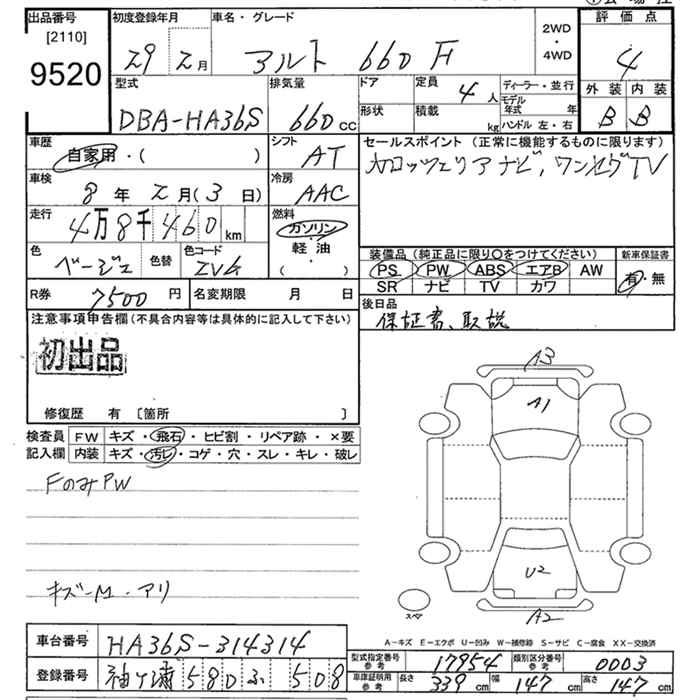 出品番号
[2110]
9520
初度登録年月
29 2月
車名・グレード
アルト 660 F
2WD
・
4WD
評価点
4
外装 内装
B B
型式
DBA-HA36S
排気量
660 cc
ドア
形状
定員
4人
積載
kg
ディーラー・並行
モデル年式 年
ハンドル 左・右
車歴
自家用・( )
シフト
AT
車検
8年2月(3日)
冷房
AAC
走行
4万8千460 km
燃料
ガソリン
軽・油
( ・ )
色
ベージュ
色替
色コード
ZVG
R券 7500円
名変期限 月 日
セールスポイント (正常に機能するものに限ります)
カロッツェリアナビ、ワンセグTV
装備品 (純正品に限り○をつけてください)
PS PW ABS エアB AW
SR ナビ TV カワ
新車保証書
有・無
後日品
保証書、取説
注意事項申告欄 (不具合内容等は具体的に記入して下さい)
初出品
修復歴 有 [箇所 ]
検査員
記入欄
FW キズ・飛石・ヒビ割・リペア跡・×要
内装 キズ・汚レ・コゲ・穴・スレ・キレ・破レ
FのみPW
キズ-M・アリ
A3
A1
U2
A2
スペア
A-キズ E-エクボ U-凹み W-補修跡 S-サビ C-腐食 XX-交換済
車台番号 HA36S-314314
登録番号 袖ケ浦 580 ふ 508
型式指定番号 参考 17954
類別区分番号 参考 0003
車庫証明用 参考 長さ 339cm 幅 147cm 高さ 147cm